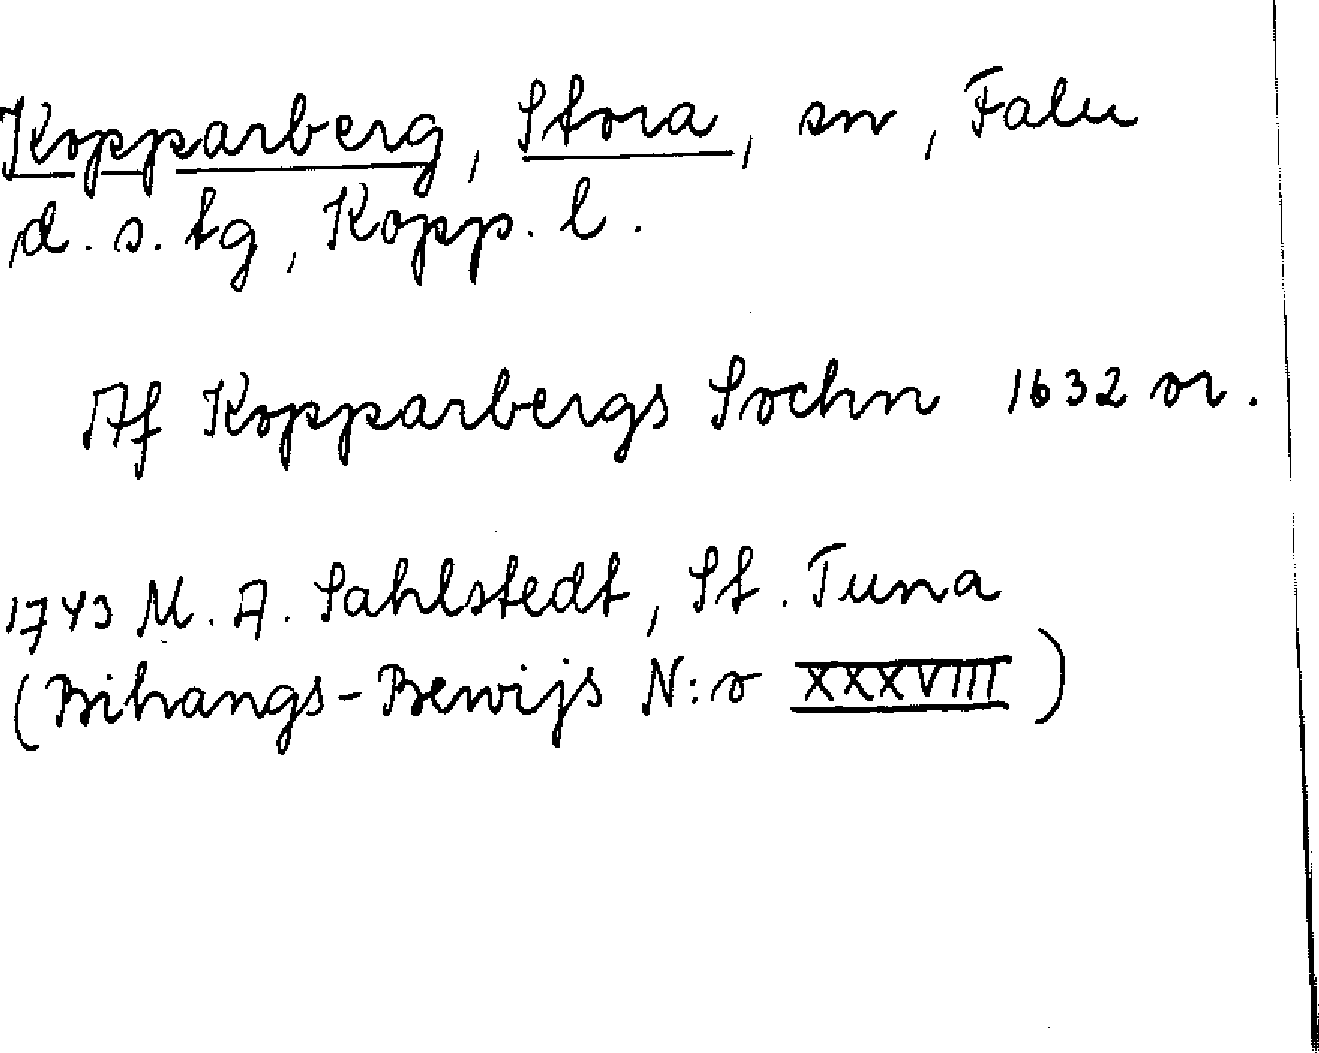 Kopparberg, Stora, sn, Falu
d. s. tg, Kopp. l.
Af Kopparbergs Sochn 1632 or.
1743 M. A. Sahlstedt, St. Tuna
(Bihangs-Bewijs N:o XXXVIII)